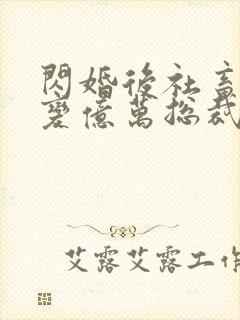 閃婚後社畜
變億萬總裁
艾露艾露工作